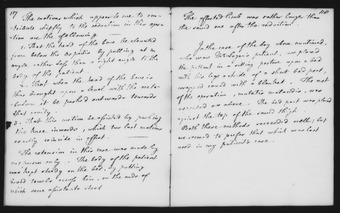 17
The motions which appear to me to con-
tribute chiefly to the reduction in this opera-
tion are the following.
1. That the head of the bone be elevated
from below the pelvis. By pulling at an
angle rather less than a right angle to the
body of the patient
2. That when the head of the bone is
thus brought upon a level with the aceta-
bulum it be pushed outwards towards
that cavity
3. That this motion be assisted by pushing
the knee inwards, which two last motions
exactly coincide in effect
The extension in this case was made by
one person only. The body of the patient
was kept steady on the bed, by putting
broad towels across him, on the ends of
which some assistants stood
The affected limb was rather longer than
the sound one after the reduction.
In the case of the boy above mentioned,
who was patient, we placed
the patient in a sitting posture upon a bed
with his legs outside of a short bed post,
wrapped round with a blanket. The rest
of the operation, mutatis mutandis, was
executed as above. The bed post was placed
against the top of the sound thigh
Both these methods succeeded well; but
we seemed to prefer that which was last
used in my patient's case.